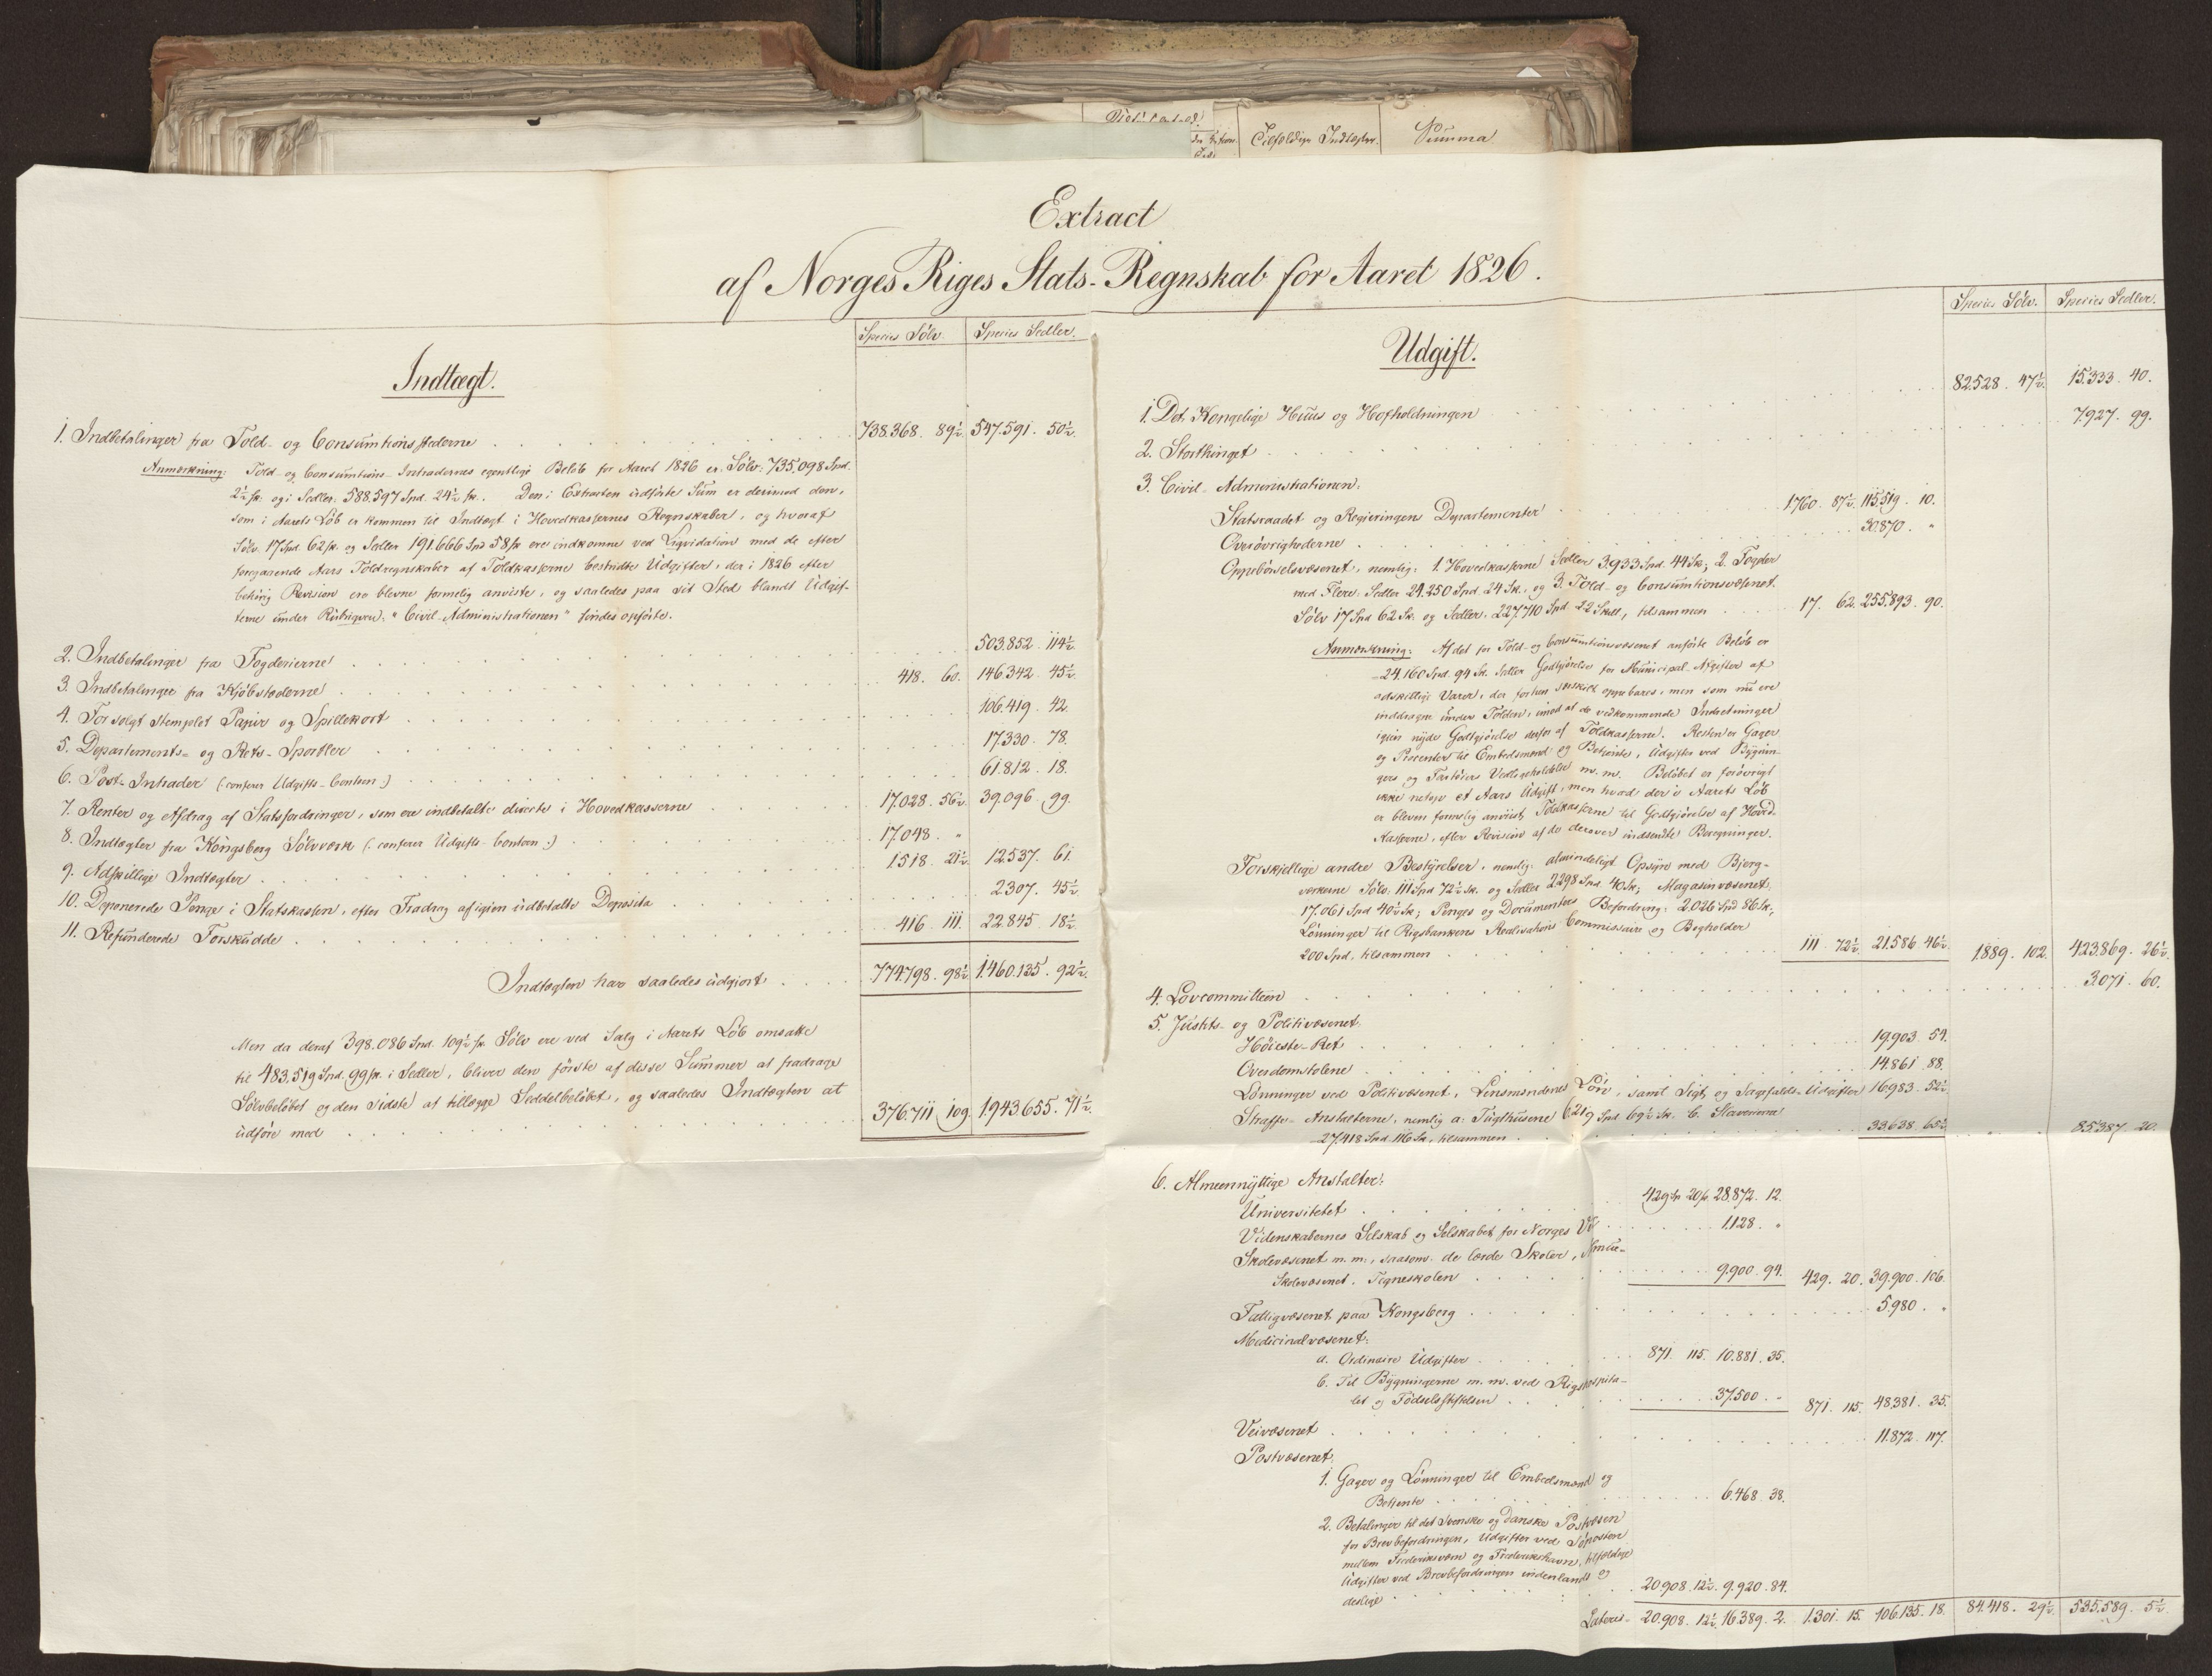 Tilfældige Indtægter.
Summa
Extract
af Norges Riges Stats-Regnskab for Aaret 1826.
Species Sölv. Species Sedler.
Indtægt.
1. Indbetalinger fra Told- og Consumtionsstederne 738.368. 89½. 547.591. 50½.
Anmærkning: Told- og Consumtions-Intradernes egentlige Belöb for Aaret 1826 er: Sölv: 735,098 Spd.
2½ sk. og i Sedler: 588.597 Spd. 24½ sk. Den i Extracten udförte Sum er derimod den,
som i Aarets Löb er kommen til Indtægt i Hovedkassernes Regnskaber, og hvoraf
Sölv. 17 Spd. 62 sk. og Sedler 191.666 Spd 58 sk ere indkomne ved Liqvidation med de efter
foregaaende Aars Toldregnskaber af Toldkasserne bestridte Udgifter, der i 1826 efter
behörig Revision ere blevne formelig anviste, og saaledes paa sit Sted blandt Udgif-
terne under Rubriqven: "Civil-Administrationen" findes opförte.
2. Indbetalinger fra Fogderierne 503.852. 114½.
3. Indbetalinger fra Kjöbstæderne 418. 60. 146.342. 45½.
4. For solgt stemplet Papir og Spillekort 106.419. 42.
5. Departements- og Rets-Sportler 17.330. 78.
6. Post-Intrader (: conferer Udgifts-Contoen :) 61.812. 18.
7. Renter og Afdrag af Statsfordringer, som ere indbetalte directe i Hovedkasserne 17.028. 56½. 39.096. 99.
8. Indtægter fra Kongsberg Sölvværk (: conferer Udgifts-Contoen :) 17.048. "
9. Adskillige Indtægter 1518. 21½. 12.537. 61.
10. Deponerede Penge i Statskassen, efter Fradrag af igien udbetalte Deposita 2307. 45½.
11. Refunderede Forskudde 416. 111. 22.845. 18½.
Indtægten har saaledes udgjort 774.798. 98½. 1.460.135. 92½.
Men da deraf 398.086 Spd. 109½ sk. Sölv ere ved Salg i Aarets Löb omsatte
til 483.519 Spd. 99 sk. i Sedler, bliver den förste af disse Summer at fradrage
Sölvbelöbet og den sidste at tillægge Seddelbelöbet, og saaledes Indtægten at
udföre med 376.711 109. 1.943.655. 71½.
Species Sölv. Species Sedler.
Udgift.
1. Det Kongelige Huus og Hofholdningen 82.528. 47½. 15.333. 40.
2. Storthinget 7.927. 99.
3. Civil-Administrationen:
Statsraadet og Regjeringens Departementer 1.760. 87½. 115.519. 10.
Overövrighederne 30.870. "
Oppebörselsvæsenet, nemlig: 1. Hovedkasserne Sedler 3.933 Spd. 44 Sk.; 2. Fogder
med Flere: Sedler 24.250 Spd. 24 Sk. og 3. Told- og Consumtionsvæsenet:
Sölv 17 Spd 62 Sk. og Sedler: 227.710 Spd. 22 Skill, tilsammen 17. 62. 255.893. 90.
Anmærkning: Af det for Told- og Consumtionsvæsenet anförte Belöb er
24.160 Spd. 94 Sk. Sedler Godtgjörelse for Municipal-Afgifter af
adskillige Varer, der forhen særskilt oppebares, men som nu ere
inddragne under Tolden, imod at de vedkommende Indretninger
igien nyde Godtgjörelse derfor af Toldkasserne. Resten er Gager
og Procenter til Embedsmænd og Betjente, Udgifter ved Bygnin-
gers og Fartöiers Vedligeholdelse m. m. Belöbet er forövrigt
ikke netop et Aars Udgift, men hvad der i Aarets Löb
er bleven formelig anviist Toldkasserne til Godtgjörelse af Hoved-
Kasserne, efter Revision af de derover indsendte Beregninger.
Forskjellige andre Bestyrelser, nemlig: almindeligt Opsyn med Bjerg-
værkerne Sölv: 111 Spd 72½ Sk. og Sedler 2298 Spd. 40 Sk.; Magasinvæsenet:
17.061 Spd 40½ Sk; Penges og Documenters Befordring: 2.026 Spd 86 Sk;
Lönninger til Rigsbankens Realisations Commissairer og Bogholder
200 Spd, tilsammen 111. 72½. 21.586. 46½. 1.889. 102. 423.869. 26½.
4. Lovcommitteen 3.071. 60.
5. Justits- og Politivæsenet:
Höieste-Ret 19.903. 54.
Overdomstolene 14.861. 88.
Lönninger ved Politivæsenet, Lensmændenes Lön, samt Sigt og Sagefalds-Udgifter 16.983. 52½.
Straffe-Anstalterne, nemlig a: Tugthusene 6.219 Spd 69½ Sk. b. Slaverierne
27.418 Spd 116 Sk, tilsammen 33.638. 65½. 85.387. 20.
6. Almeennyttige Anstalter:
Universitetet 429 Sp. 20 sk. 28.872. 12.
Videnskabernes Selskab og Selskabet for Norges Vel 1.128. "
Skolevæsenet m. m., saasom: de lærde Skoler, Almue-
Skolevæsenet, Tegneskolen 9.900. 94. 429. 20. 39.900. 106.
Fattigvæsenet paa Kongsberg 5.980. "
Medicinalvæsenet:
a. Ordinaire Udgifter 871. 115. 10.881. 35.
b. Til Bygningerne m. m. ved Rigshospita-
let og Födselsstiftelsen 37.500. " 871. 115. 48.381. 35.
Veivæsenet 11.872. 117.
Postvæsenet:
1. Gager og Lönninger til Embedsmænd og
Betjente 6.468. 38.
2. Betalinger til det Svenske og danske Postvæsen
for Brevbefordringen, Udgifter ved Söposten
mellem Frederiksværn og Frederikshavn, tilfældige
Udgifter ved Brevbefordringen indenlands og
deslige 20.908. 12½. 9.920. 84.
Lateres 20.908. 12½. 16.389. 2. 1.301. 15. 106.135. 18. 84.418. 29½. 535.589. 5½.